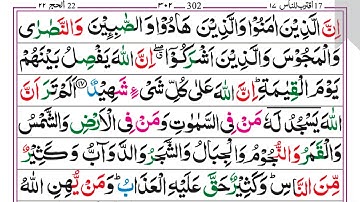 اقترب للناس ١٧ 17 ٣٠٢ 302 الحج ٢٢ 22
اِنَّ الَّذِيۡنَ اٰمَنُوۡا وَالَّذِيۡنَ هَادُوۡا وَالصّٰبِـِٕيۡنَ وَالنَّصٰرٰى
وَالۡمَجُوۡسَ وَالَّذِيۡنَ اَشۡرَكُوۡۤا ۖ اِنَّ اللّٰهَ يَفۡصِلُ بَيۡنَهُمۡ
يَوۡمَ الۡقِيٰمَةِ ؕ اِنَّ اللّٰهَ عَلٰى كُلِّ شَىۡءٍ شَهِيۡدٌ ﴿۱۷﴾ اَلَمۡ تَرَ اَنَّ
اللّٰهَ يَسۡجُدُ لَهٗ مَنۡ فِى السَّمٰوٰتِ وَمَنۡ فِى الۡاَرۡضِ وَالشَّمۡسُ
وَالۡقَمَرُ وَالنُّجُوۡمُ وَالۡجِبَالُ وَالشَّجَرُ وَالدَّوَآبُّ وَكَثِيۡرٌ
مِّنَ النَّاسِ ؕ وَكَثِيۡرٌ حَقَّ عَلَيۡهِ الۡعَذَابُ ؕ وَمَنۡ يُّهِنِ اللّٰهُ